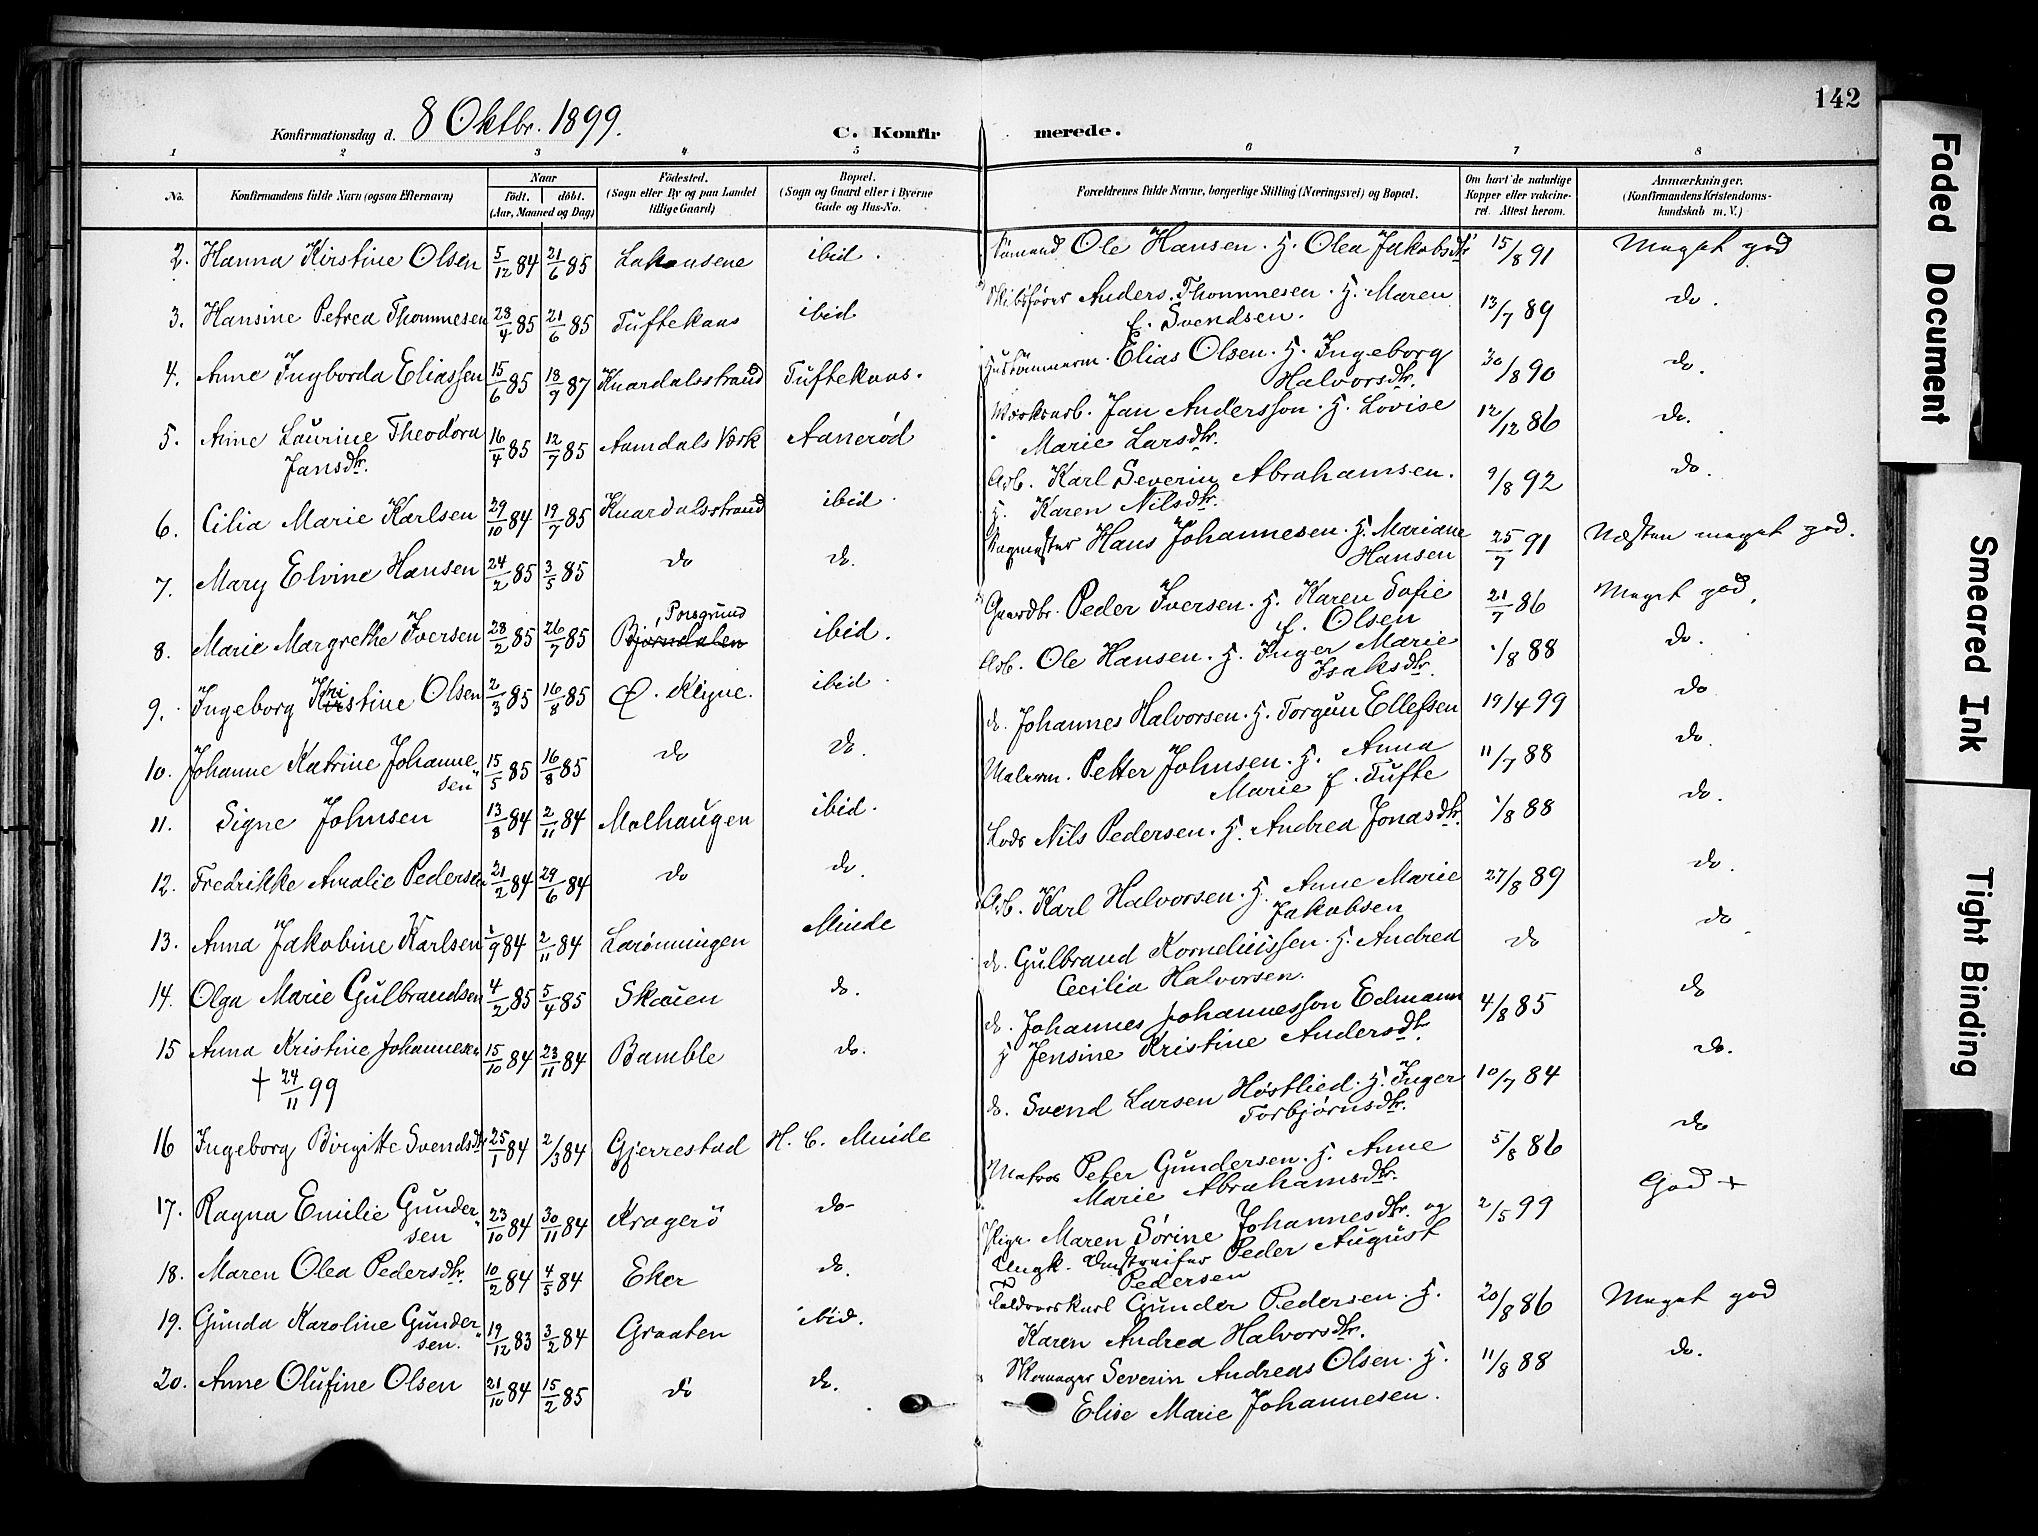 142
Konfirmationsdag d. 8 Oktbr. 1899.
C. Konfirmerede.
1 2 3 4 5 6 7 8
No. Konfirmandens fulde Navn (ogsaa Efternavn) Naar født. døbt. (Aar, Maaned og Dag) Fødested. (Sogn eller By og paa Landet tillige Gaard) Bopæl. (Sogn og Gaard eller i Byerne Gade og Hus-No. Forældrenes fulde Navne, borgerlige Stilling (Næringsvei) og Bopæl. Om havt de naturlige Kopper eller vakcineret. Attest herom. Anmærkninger. (Konfirmandens Kristendomskundskab m. V.)
2. Hanna Kirstine Olsen 5/12 84 21/6 85 Lakousene ibid. Sømand Ole Hansen. H. Olea Jakobsdtr 15/8 91 Meget god
3. Hansine Petrea Thommesen 28/4 85 21/6 85 Tuftekaas ibid Skibsfører Anders Thommesen. H. Maren
f. Svendsen. 13/7 89 do.
4. Anne Ingborda Eliassen 15/6 85 18/9 87 Knardalsstrand Tuftekaas. Hustømmerm. Elias Olsen. H. Ingeborg
Halvorsdtr. 30/8 90 do.
5. Anne Laurine Theodora
Jansdtr. 16/4 85 12/7 85 Aamdals Værk Aanerød Værksarb. Jan Andersson. H. Lovise
Marie Larsdtr. 12/12 86 do.
6. Cilia Marie Karlsen 29/10 84 19/7 85 Knardalsstrand ibid Arb. Karl Severin Abrahamsen.
H. Karen Nilsdtr. 9/8 92 do.
7. Mary Elvine Hansen 24/2 85 3/5 85 do do. Hans Johannesen. H. Mariane
Hansen 25/7 91 Næsten meget god.
8. Marie Margrethe Iversen 28/2 85 26/7 85 Bjørndalen, Porsgrund ibid. Gaardbr. Peder Iversen. H. Karen Sofie
f. Olsen 21/7 86 Meget god.
9. Ingeborg Kristine Olsen 2/3 85 16/8 85 Ø. Klyve. ibid. Arb. Ole Hansen. H. Inger Marie
Isaksdtr. 1/8 88 do.
10. Johanne Katrine Johannesen 15/5 85 16/8 85 do do. do. Johannes Halvorsen. H. Torgun Ellefsen 19/4 99 do
11. Signe Johnsen 13/8 84 2/11 84 Mælhaugen ibid. Malerm. Petter Johnsen. H. Anna
Marie f. Tufte 11/7 88 do.
12. Fredrikke Amalie Pedersen 21/2 84 29/6 84 do do. Lods Nils Pedersen. H. Andrea Jonasdtr. 1/8 88 do.
13. Anna Jakobine Karlsen 1/9 84 2/11 84 Larønningen Minde Arb. Karl Halvorsen. H. Anne Marie
Jakobsen 27/8 89 do.
14. Olga Marie Gulbrandsen 4/2 85 5/4 85 Skauen do. do. Gulbrand Korneliussen. H. Andrea
Cecilia Halvorsen. do do
15 Anna Kristine Johannesen
† 24/11 99 15/10 84 23/11 84 Bamble do. do. Johannes Johannesson Edmann
H Jensine Kristine Andersdtr. 4/8 85 do
16 Ingeborg Birgitte Svendsdtr 25/1 84 2/3 84 Gjerrestad H. C. Minde do. Svend Larsen Høstlied. H. Inger
Torbjørnsdtr. 10/7 84 do.
17. Ragna Emilie Gundersen 23/10 84 30/11 84 Kragerø do. Matros Peter Gundersen. H. Anne
Marie Abrahamsdtr. 5/8 86 do
18. Maren Olea Pedersdtr. 10/2 84 4/5 84 Eker do. Pige Maren Sørine Johannesdtr. og
Ungk. Omstreifer Peder August
Pedersen 2/5 99 God +
19. Gunda Karoline Gundersen. 19/12 83 3/2 84 Graaten ibid. Gunder Pedersen. H.
Karen Andrea Halvorsdtr. 20/8 86 Meget god
20. Anne Olufine Olsen 21/10 84 15/2 85 do do. Skomager Severin Andreas Olsen. H.
Elise Marie Johannesen. 11/8 88 do.
Faded Document
Smeared Ink
Tight Binding